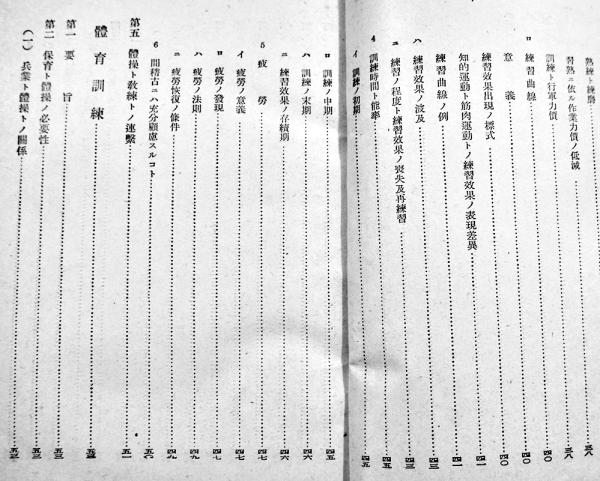 熟練ト練磨……三八
習熟ニ依ル作業力價ノ低減……三八
訓練ト行軍力價……四〇
ロ 練習曲線……四〇
意義……四〇
練習效果出現ノ樣式……四一
知的運動ト筋肉運動トノ練習效果ノ表現差異……四一
練習曲線ノ例……四三
ハ 練習效果ノ波及……四三
ニ 練習ノ程度ト練習效果ノ喪失及再練習……四五
4 訓練時間ト能率……四五
イ 訓練ノ初期……四五
ロ 訓練ノ中期……四五
ハ 訓練ノ末期……四六
ニ 練習效果ノ存續期……四六
5 疲勞……四七
イ 疲勞ノ意義……四七
ロ 疲勞ノ發現……四七
ハ 疲勞ノ法則……四九
ニ 疲勞恢復ノ條件……四九
6 間稽古ニハ充分顧慮スルコト……五〇
第五 體操ト敎練トノ連繫……五一
體育訓練……五三
第一 要旨……五三
第二 保育ト體操ノ必要性……五三
(一) 兵業ト體操トノ關係……五三